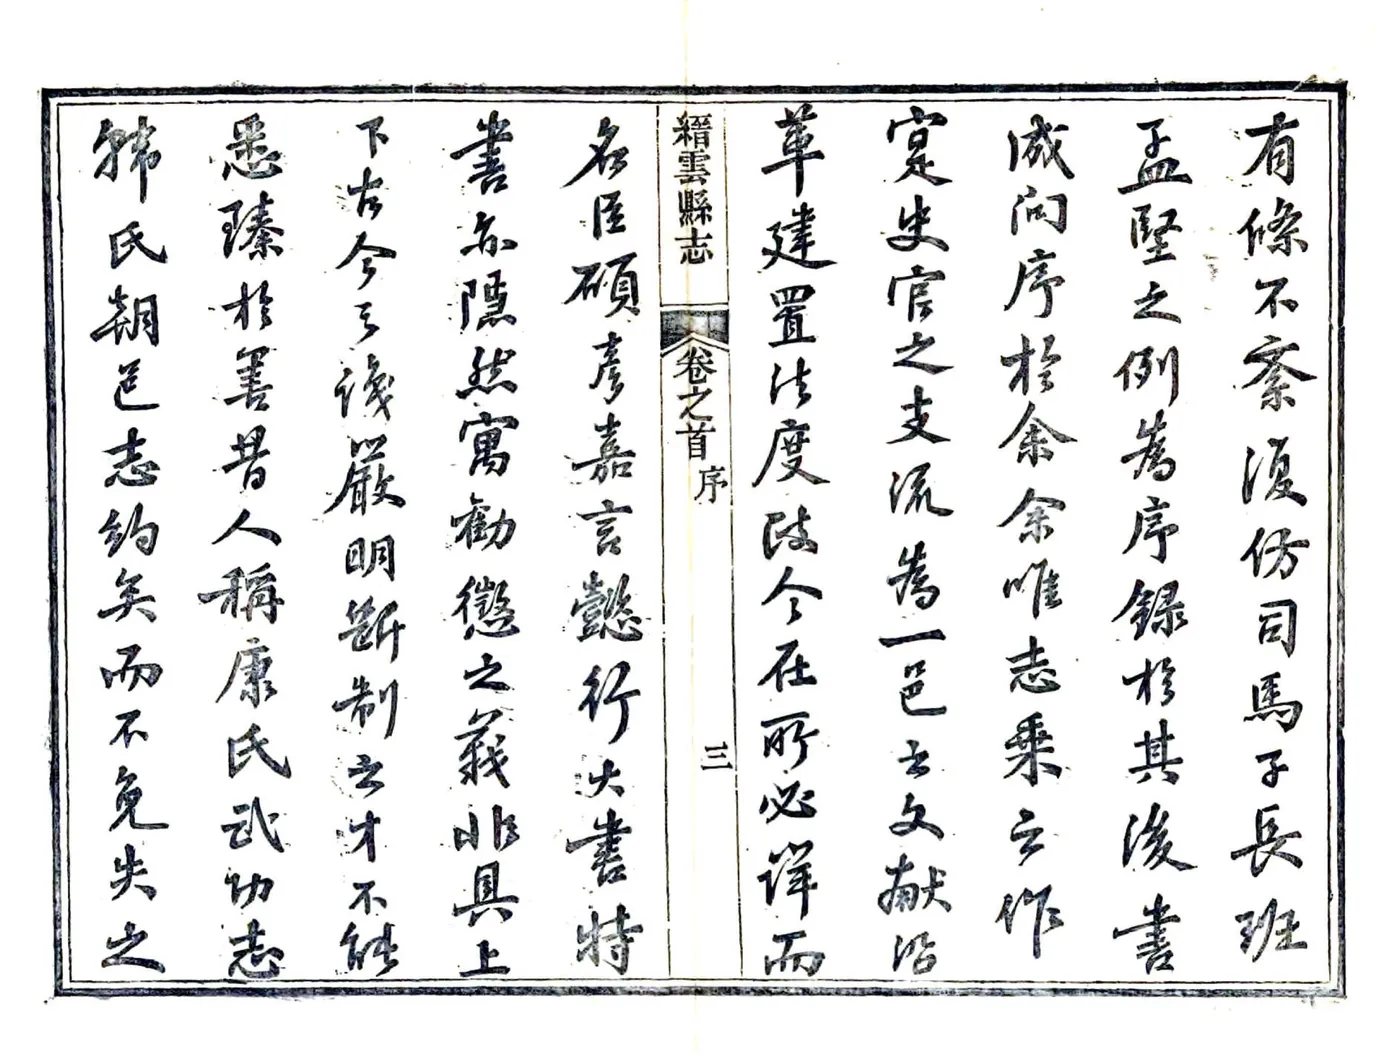 有條不紊復仿司馬子長班
孟堅之例為序錄於其後書
成問序於余余唯志乘之作
寔史官之支流為一邑之文獻沿
革建置法度政令在所必詳而
縉雲縣志
卷之首
序
三
名臣碩彥嘉言懿行大書特
書亦隱然寓勸懲之義非具上
下古今之識嚴明斷制之才不能
悉臻於善昔人稱康氏武功志
韩氏朝邑志約矣而不免失之